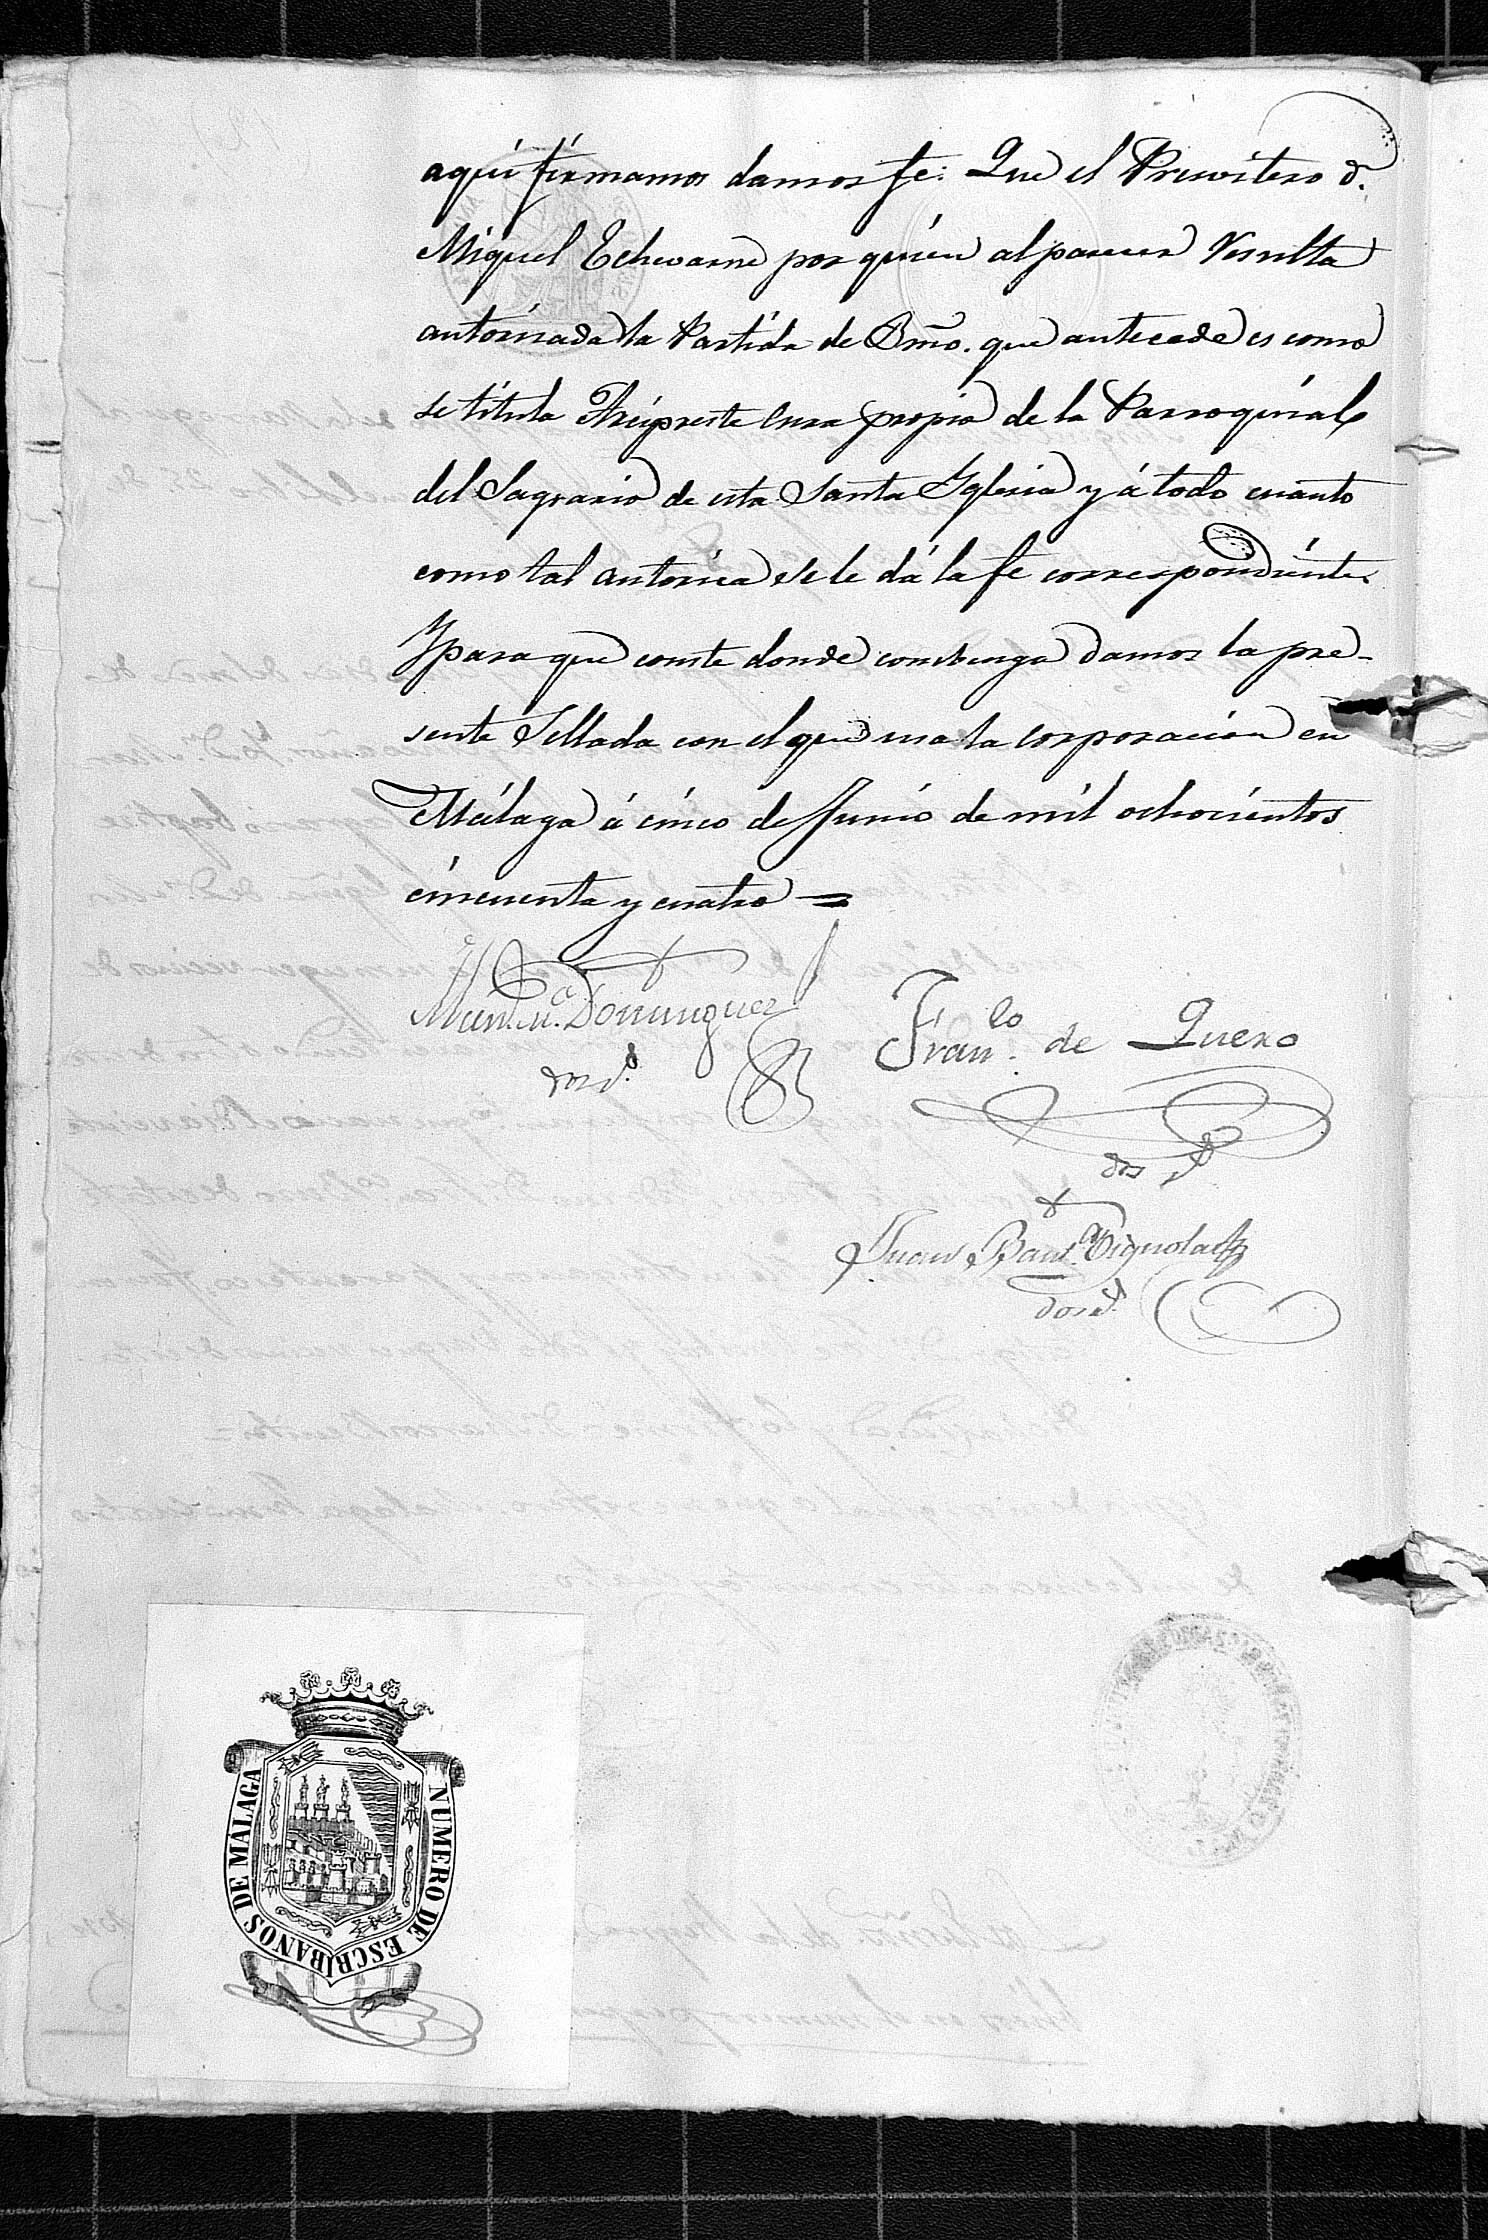 aquí firmamos damos fe: Que el Presvitero d.
Miguel Echevarne por quien al parecer resulta
autorizada la Partida de Bmo. que antecede es como
se titula Arcipreste Cura propio de la Parroquial
del Sagrario de esta Santa Yglesia y á todo cuanto
como tal autoriza se le dá la fe correspondiente.
Y para que conste donde combenga damos la pre-
sente Sellada con el que usa la corporacion en
Málaga á cinco de Junio de mil ochocientos
cincuenta y cuatro =
Dominguez
Franco. de Quero
dos r.
Juan Baut.a Vignolas
dos r.
NUMERO DE ESCRIBANOS DE MALAGA